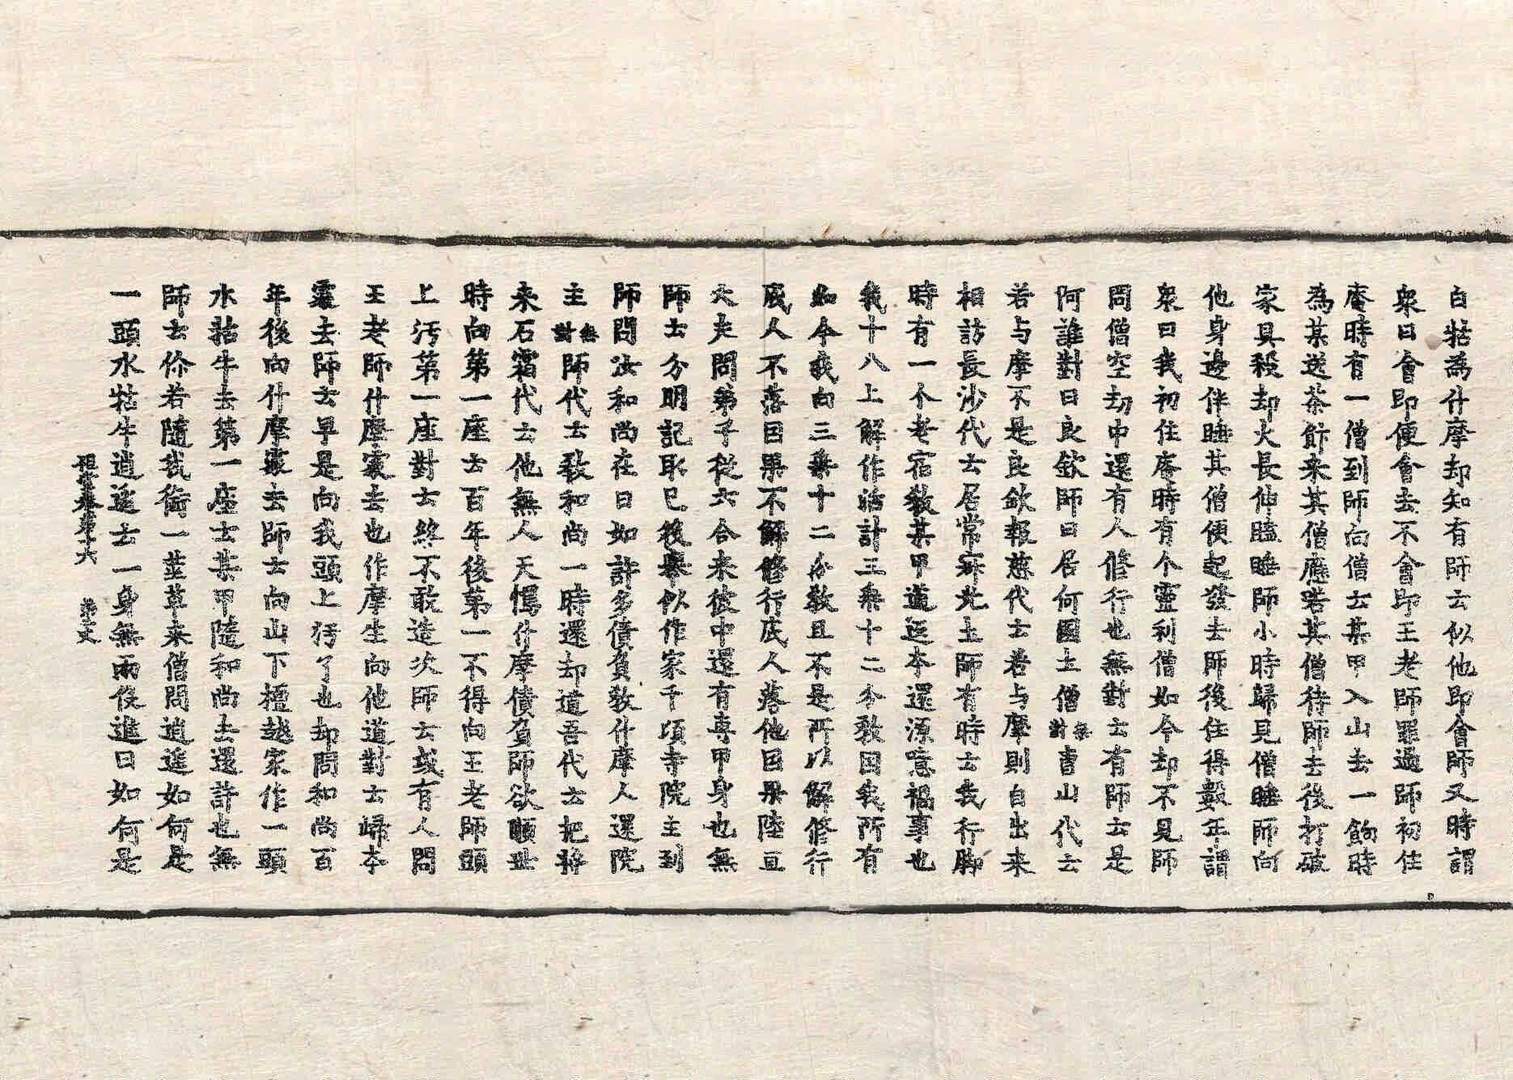 白牯為什摩却知有師云似他即會師又時謂
衆曰會即便會去不會即王老師罪過師初住
庵時有一僧到師向僧云某甲入山去一餉時
為某送茶飰来其僧應喏其僧待師去後打破
家具殺却火長伸瞌睡師小時歸見僧睡師向
他身邊伴睡其僧便起發去師後住得數年謂
衆曰我初住庵時有个靈利僧如今却不見師
問僧空劫中還有人修行也無對云有師云是
阿誰對曰良欽師曰居何國土僧無對曹山代云
若与摩不是良欽報慈代云若与摩則自出来
相訪長沙代云居常寂光土師有時云我行脚
時有一个老宿教某甲道返本還源噫禍事也
我十八上解作活計三乘十二分教因我所有
如今我向三乘十二分教且不是所以解修行
底人不落因果不解修行底人落他因果陸亘
大夫問弟子從六合来彼中還有專甲身也無
師云分明記取已後舉似作家千頃寺院主到
師問汝和尚在日如許多債負教什摩人還院
主無對師代云教和尚一時還却道吾代云把將
来石霜代云他無人天愕什摩債負師欲順世
時向第一座云百年後第一不得向王老師頭
上污第一座對云終不敢造次師云或有人問
王老師什摩處去也作摩生向他道對云歸本
處去師云早是向我頭上污了也却問和尚百
年後向什摩處去師云向山下檀越家作一頭
水牯牛去第一座云某甲隨和尚去還許也無
師云你若隨我銜一莖草来僧問逍遙如何是
一頭水牯牛逍遙云一身無兩役進曰如何是
祖堂卷第十六　第丈